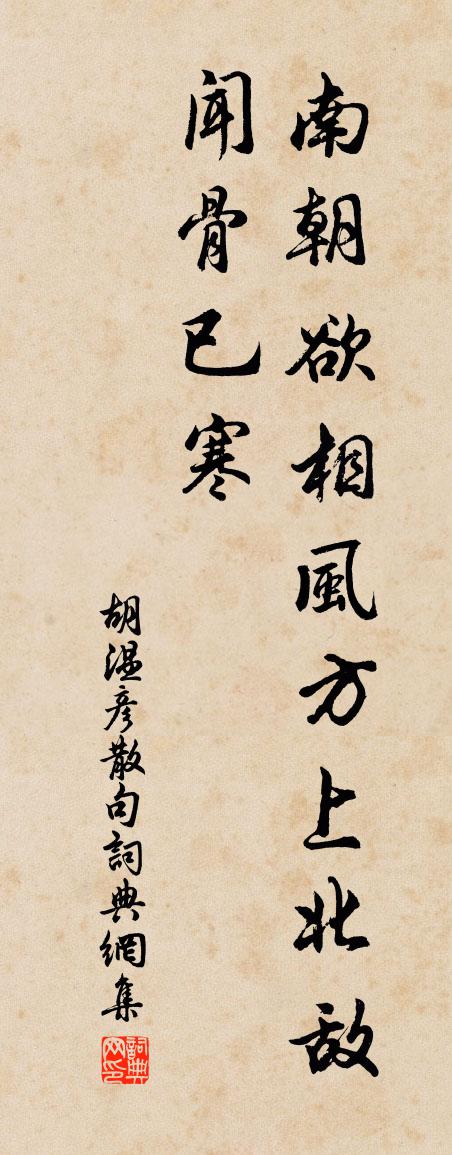 南朝欲相風方上北敌
闻骨已寒
胡温彦散句詞典網集
詞典网印